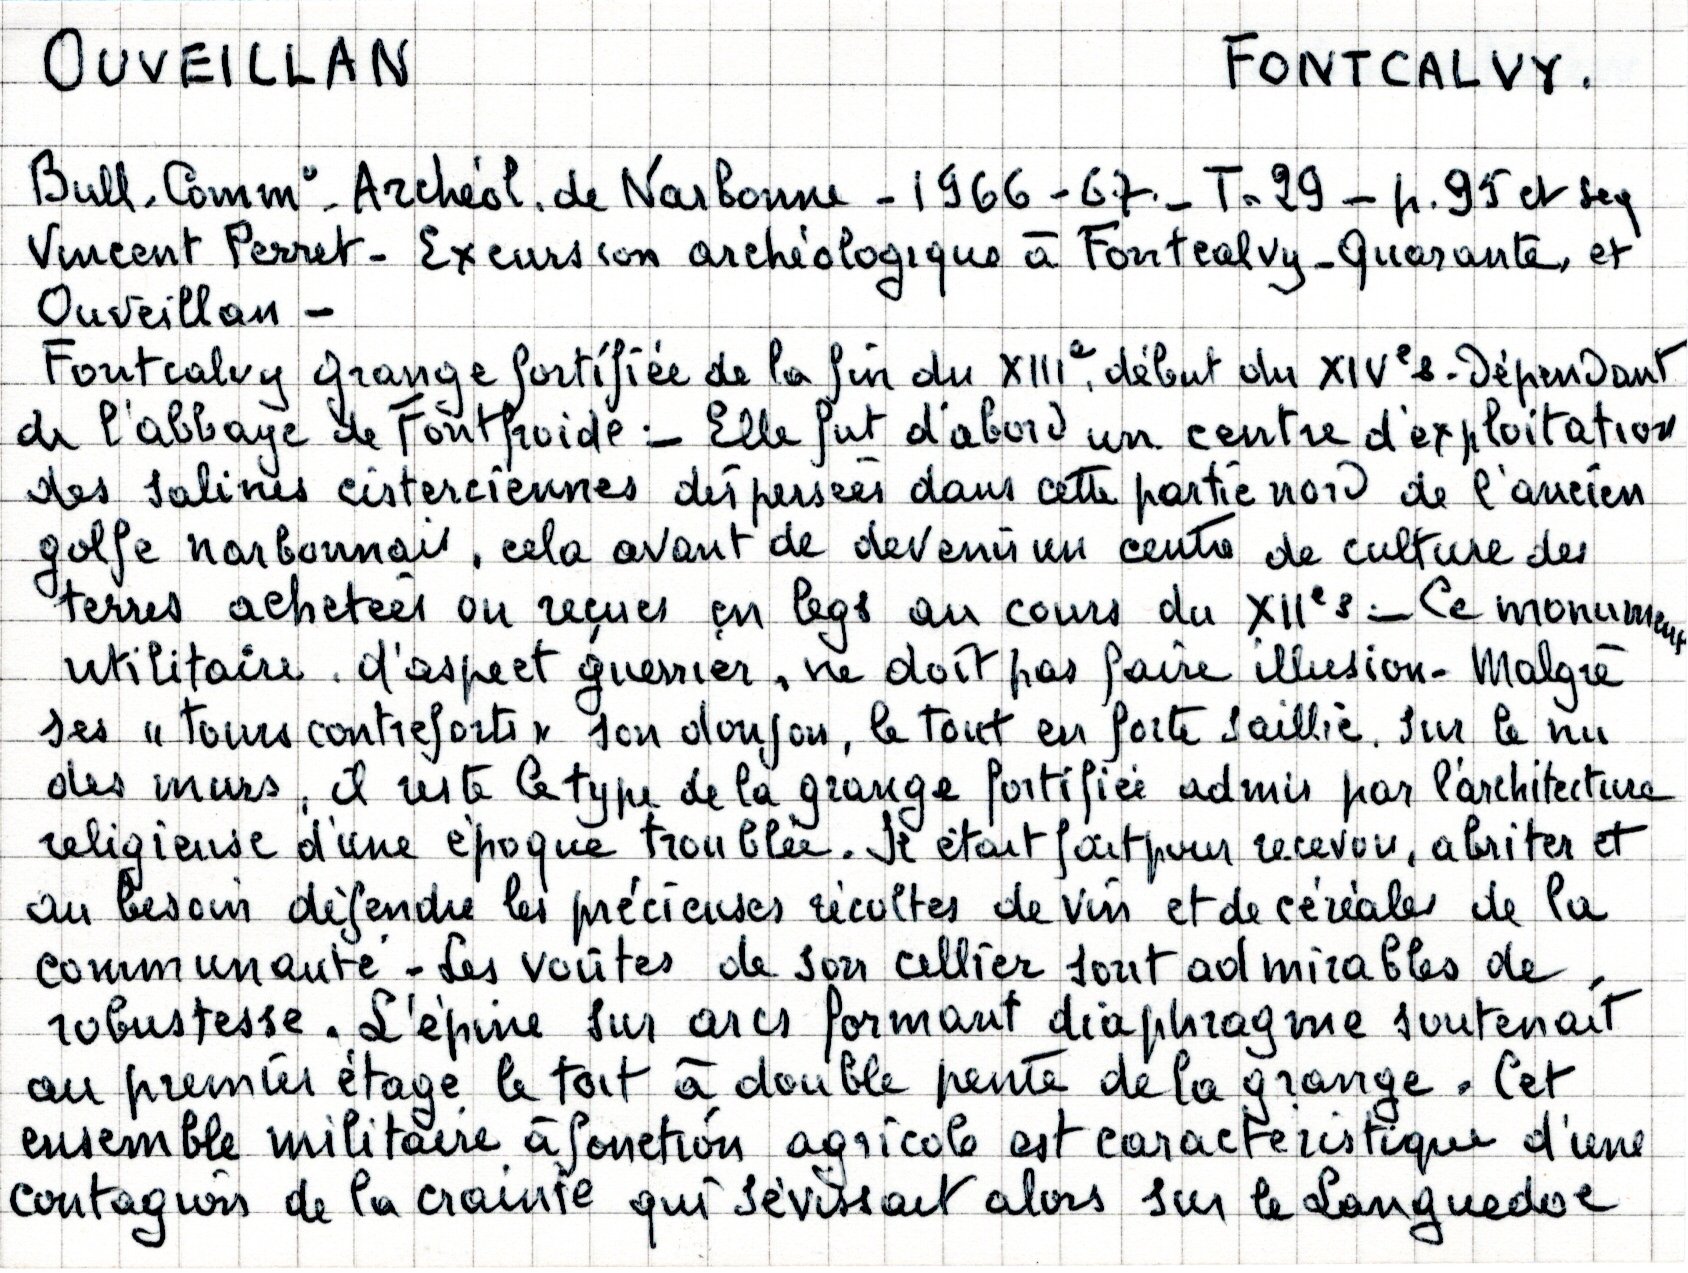 OUVEILLAN FONTCALVY.
Bull. Comm° - Archéol. de Narbonne - 1966-67. - T. 29 - p. 95 et seq
Vincent Perret - Excursion archéologique à Fontcalvy - Quarante, et
Ouveillan -
Fontcalvy grange fortifiée de la fin du XIIIe, début du XIVe s. Dépendant
de l'abbaye de Fontfroide :- Elle fut d'abord un centre d'exploitation
des salines cisterciennes dispersées dans cette partie nord de l'ancien
golfe narbonnais, cela avant de devenir un centre de culture des
terres achetées ou reçues en legs au cours du XIIe s :- Ce monument
utilitaire, d'aspect guerrier, ne doit pas faire illusion - Malgré
ses "tours contreforts" son donjon, le tout en forte saillie, sur le nu
des murs, il reste le type de la grange fortifiée admis par l'architecture
religieuse d'une époque troublée. Il était fait pour recevoir, abriter et
au besoin défendre les précieuses récoltes de vin et de céréales de la
communauté - Les voûtes de son cellier sont admirables de
robustesse. L'épine sur arcs formant diaphragme soutenait
au premier étage le toit à double pente de la grange. Cet
ensemble militaire à fonction agricole est caractéristique d'une
contagion de la crainte qui sévissait alors sur le Languedoc